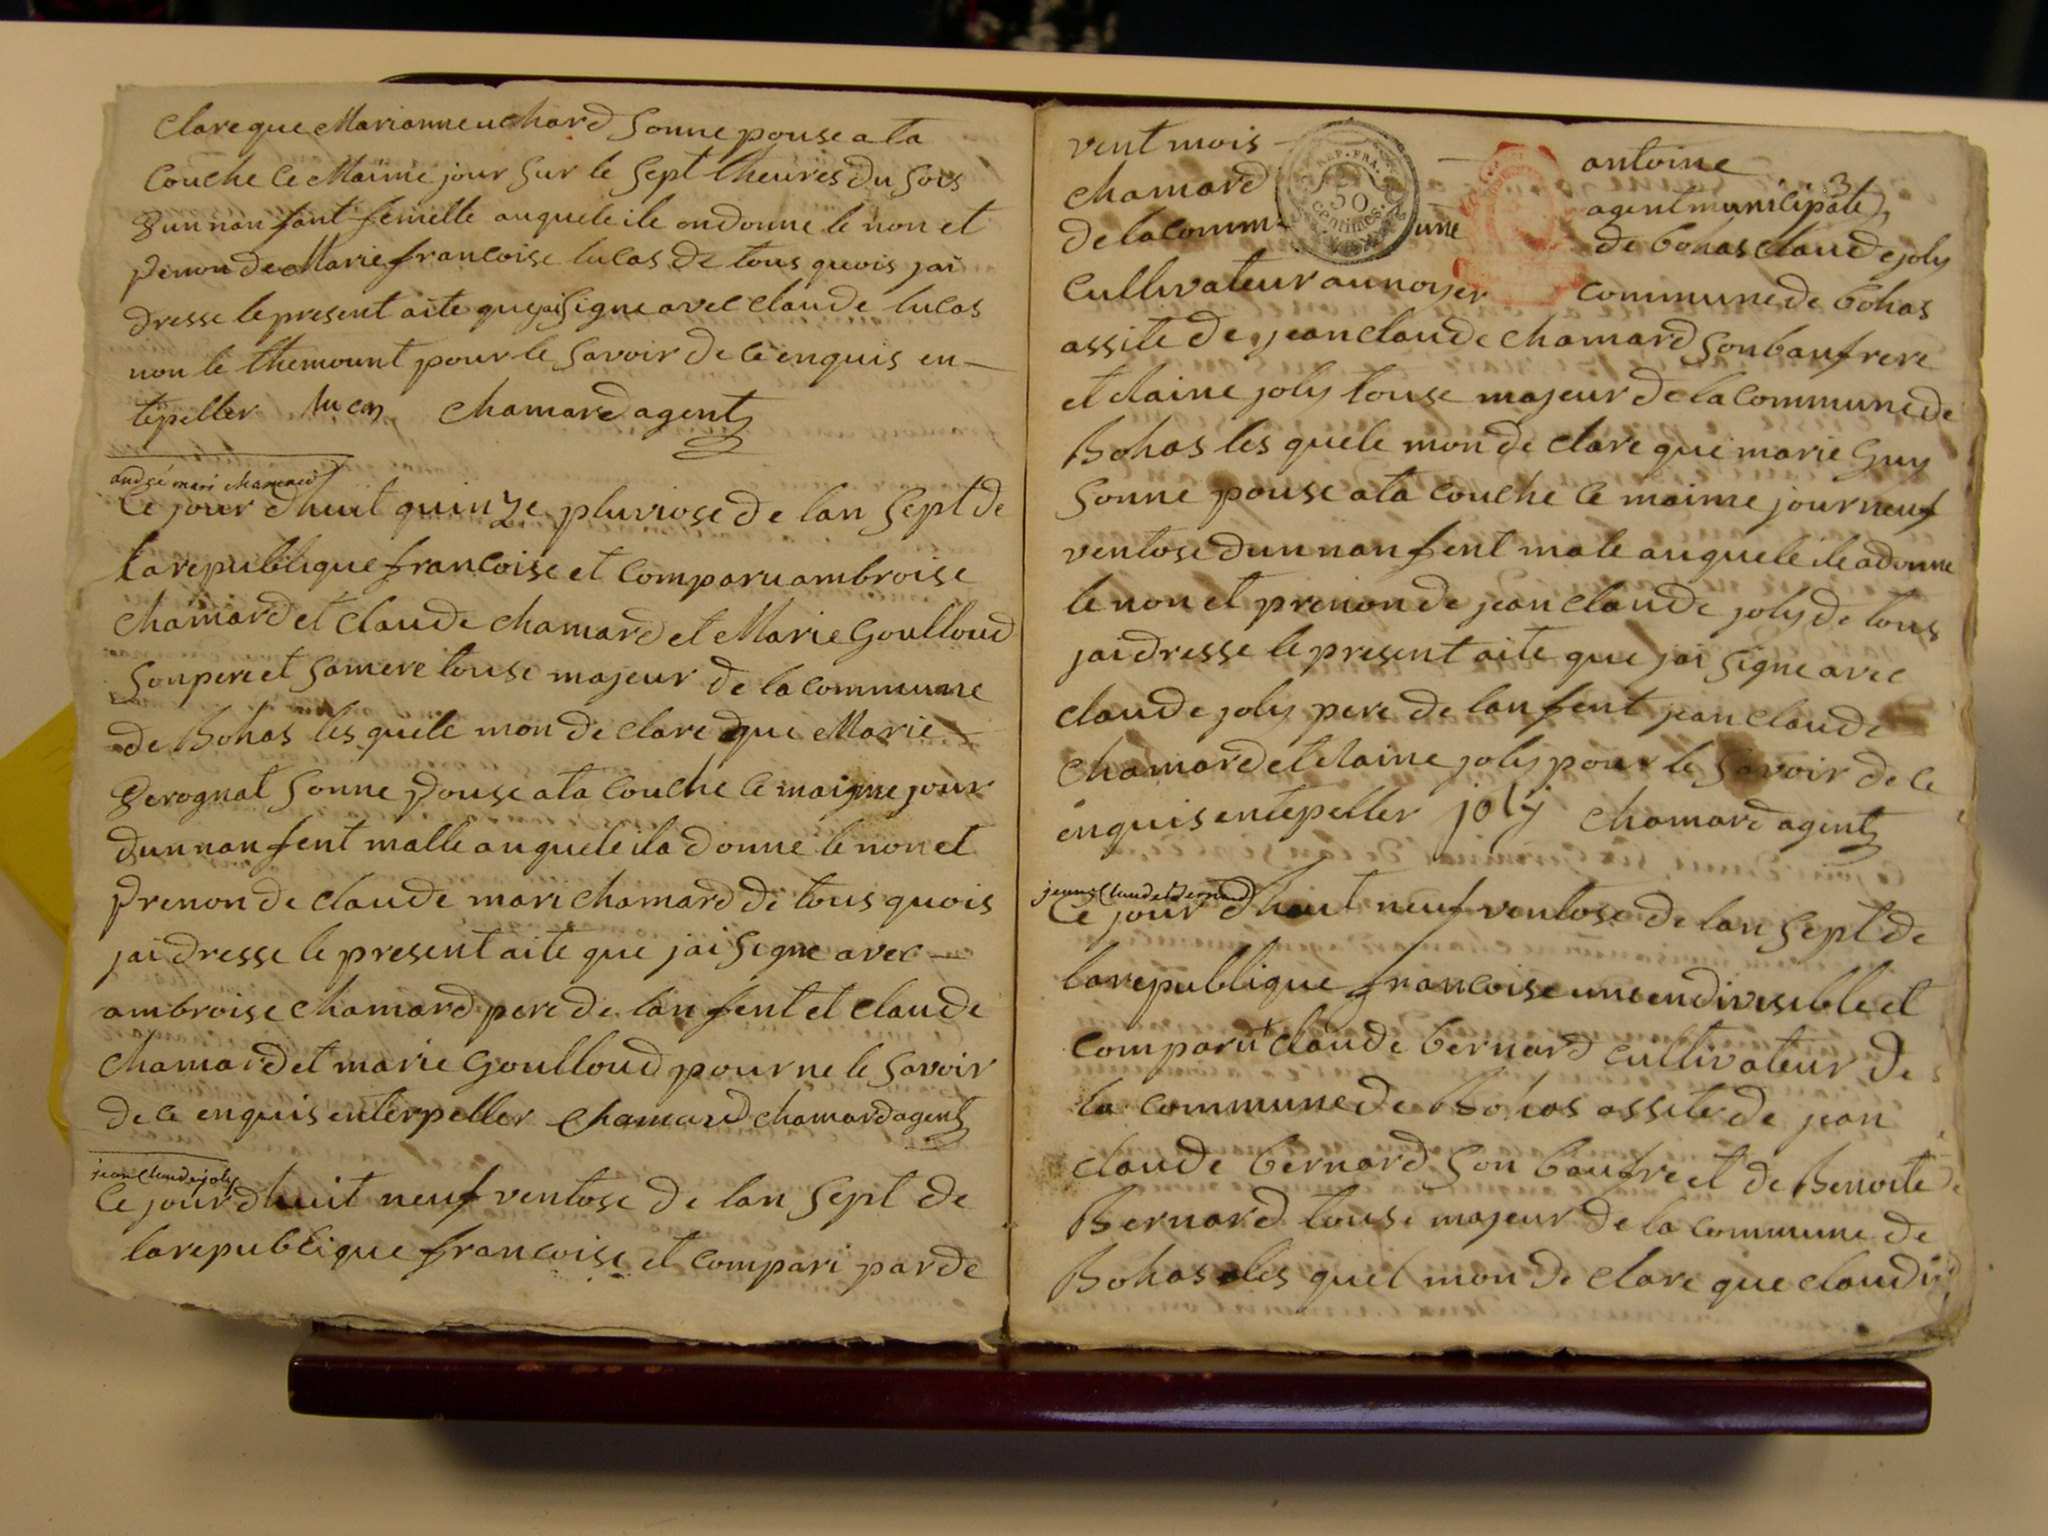 clare que Marianne uchard Sonne pouse a ta
Couche Ce Maime jour Sur le Sept theures du Soir
dun nan fant femelle auquele ile on donne le non et
penon de Marie francoise lucas de tous quois jai
dresse le present aite que jai Signe avec claude lucas
non le themount pour le Savoir de ce enquis en-
tepeller lucas chamard agent
andre mari chamard
Ce jour dhuit quinze pluviose de lan Sept de
la republique francoise et comparu ambroise
chamard et claude chamard et Marie Goulloud
Son pere et Samere touse majeur de la commune
de Bohas les quele mon de clare que Marie
derognat Sonne pouse a ta Couche Ce maigme jour
dun nan fent malle auquele ila donne le non et
prenon de claude mari chamard de tous quois
jai dresse le present aite que jai Signe avec
ambroise chamard pere de lan fent et claude
chamard et marie Goulloud pour ne le Savoir
de ce enquis enterpeller chamard chamard agent
jean claude joly
Ce jour dhuit neuf ventose de lan Sept de
la republique francoise et compari par de
vent mois antoine
chamard agent municipale
de la commune de bohas claude joly
Cultivateur au noyer commune de bohas
assite de jean claude chamard Son baufrere
et claine joly touse majeur de la commune de
Bohas les quele mon de clare que marie Guy
Sonne pouse a ta couche Ce maime jour neuf
ventose dun nan fent male auquele ile a donne
le non et prenon de jean claude joly de tous
jai dresse le present aite que jai Signe avec
claude joly pere de lan fent jean claude
chamard et claine joly pour le Savoir de ce
enquis entepeller joly chamard agent
3
REP. FRA.
50
centimes.
jeanne claude bernard
Ce jour dhuit neuf ventose de lan Sept de
la republique francoise une endivisible et
comparu claude bernard cultivateur de
la commune de Bohas assite de jean
claude bernard Son baufre et de Benoite
Bernard touse majeur de la commune de
Bohas les quel mon de clare que claudi